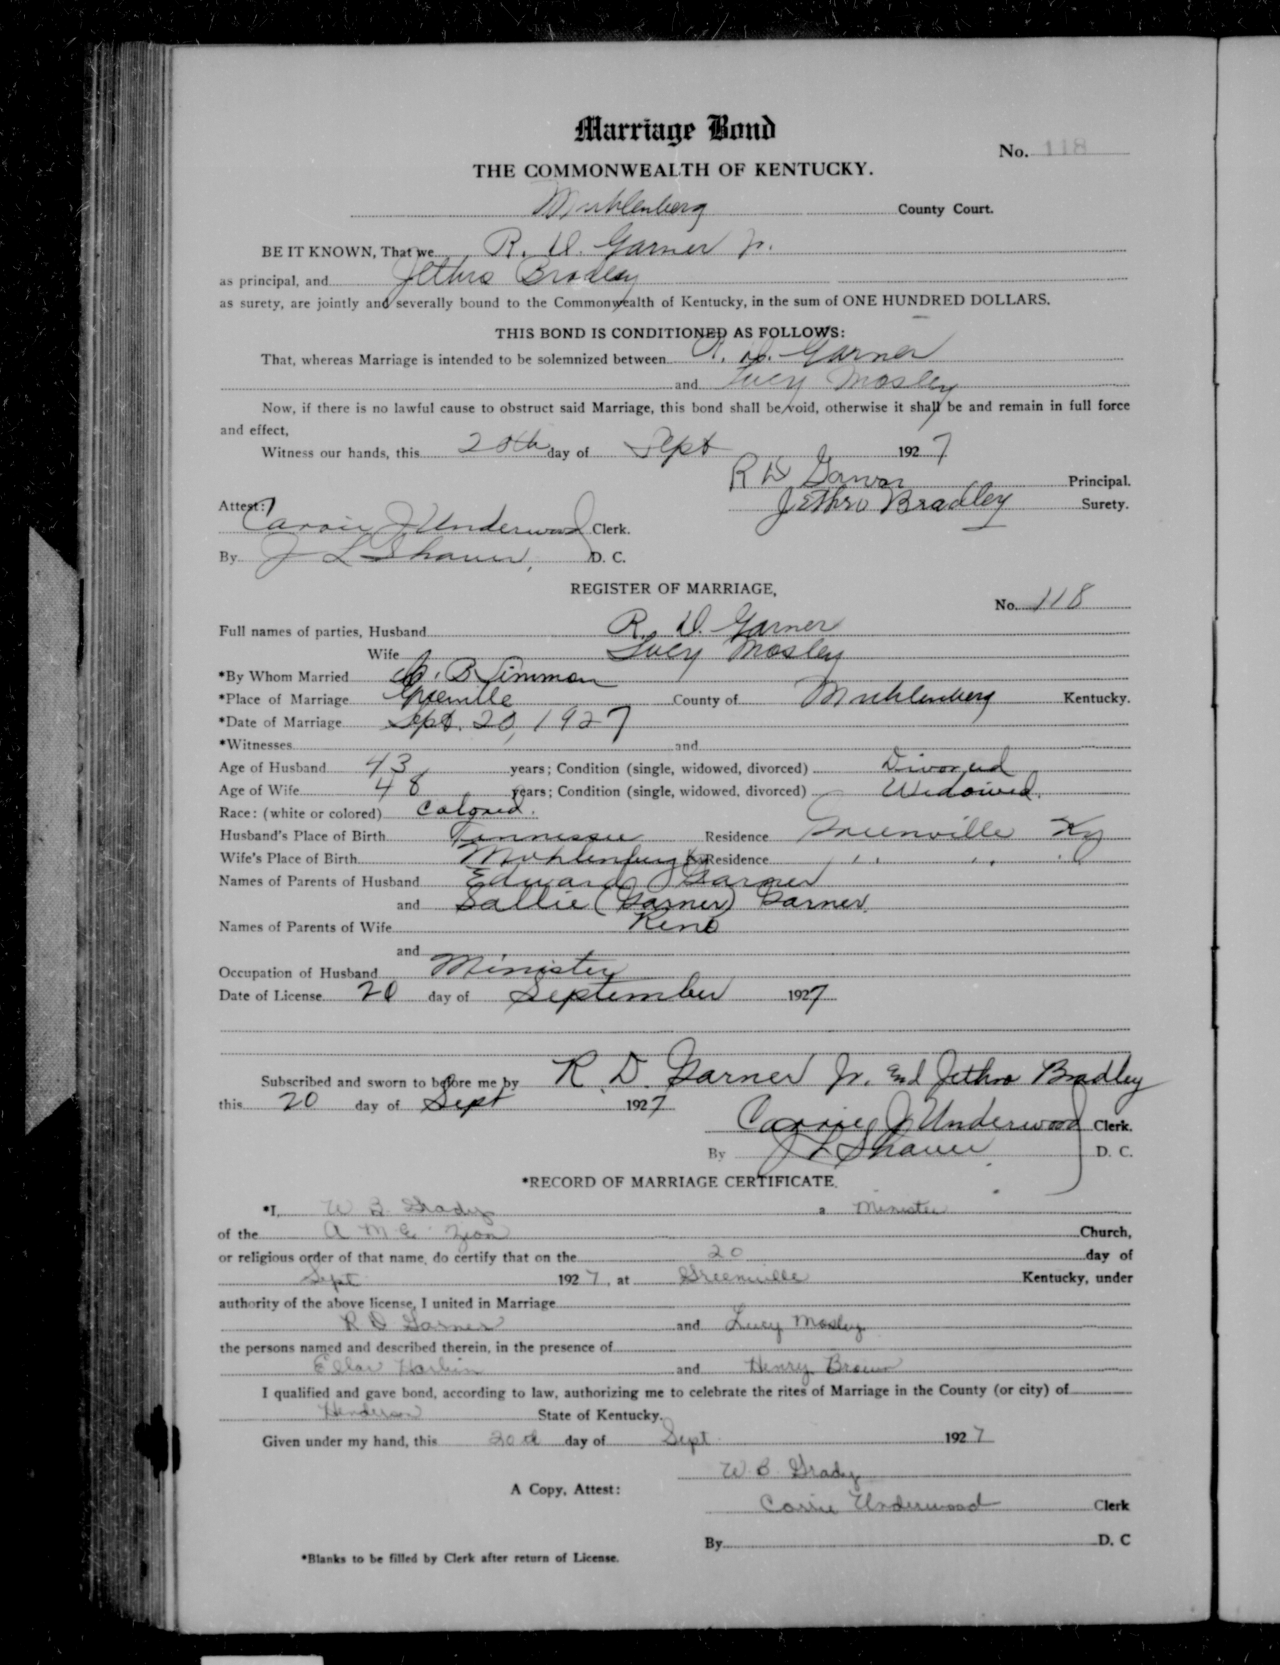 Marriage Bond
No. 118
THE COMMONWEALTH OF KENTUCKY.
Muhlenberg County Court.
BE IT KNOWN, That we R. D. Garner Jr.
as principal, and Jethro Bradley
as surety, are jointly and severally bound to the Commonwealth of Kentucky, in the sum of ONE HUNDRED DOLLARS.
THIS BOND IS CONDITIONED AS FOLLOWS:
That, whereas Marriage is intended to be solemnized between R. D. Garner
and Lucy Mosley
Now, if there is no lawful cause to obstruct said Marriage, this bond shall be void, otherwise it shall be and remain in full force
and effect,
Witness our hands, this 20th day of Sept 1927
R D Garner Principal.
Jethro Bradley Surety.
Attest:
Carrie J Underwood Clerk.
By J L Shaver, D. C.
REGISTER OF MARRIAGE,
No. 118
Full names of parties, Husband R. D. Garner
Wife Lucy Mosley
*By Whom Married B
*Place of Marriage Greenville County of Muhlenberg Kentucky.
*Date of Marriage Sept. 20, 1927
*Witnesses and
Age of Husband 43 years; Condition (single, widowed, divorced) Divorced
Age of Wife 48 years; Condition (single, widowed, divorced) Widowed.
Race: (white or colored) Colored.
Husband's Place of Birth Tennessee Residence Greenville Ky
Wife's Place of Birth Muhlenberg Ky Residence " " "
Names of Parents of Husband Edward Garner
and Sallie (Garner) Garner.
Names of Parents of Wife Reno
and
Occupation of Husband Minister
Date of License 20 day of September 1927
Subscribed and sworn to before me by R. D. Garner Jr. and Jethro Bradley
this 20 day of Sept 1927
Carrie J Underwood Clerk.
By J L Shaver D. C.
*RECORD OF MARRIAGE CERTIFICATE.
*I, W B Grady a Minister
of the A M E Zion Church,
or religious order of that name, do certify that on the 20 day of
Sept 1927, at Greenville Kentucky, under
authority of the above license, I united in Marriage
R D Garner and Lucy Mosley
the persons named and described therein, in the presence of
Ellar Harbin and Henry Brown
I qualified and gave bond, according to law, authorizing me to celebrate the rites of Marriage in the County (or city) of
Henderson State of Kentucky.
Given under my hand, this 20th day of Sept 1927
W. B. Grady
A Copy, Attest:
Carrie Underwood Clerk
By D. C
*Blanks to be filled by Clerk after return of License.